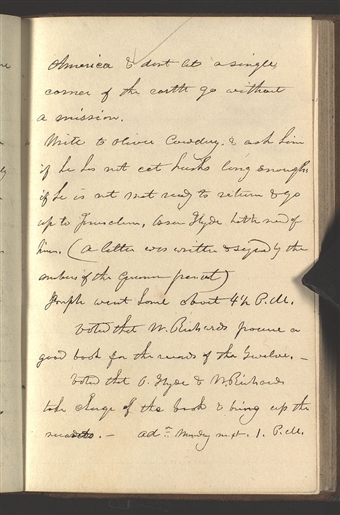 America & dont let a single
corner of the earth go without
a mission.
Write to Oliver Cowdery & ask him
if he has not eat husks long enough.
if he is not not ready to return & go
up to Jerusalem, Orson Hyde hath need of
him. (a letter was written & signed by the
members of the Quorum present)
Joseph went home about 4½ P.M.
Voted that W. Richards procure a
good book for the records of the Twelve. -
Voted that O. Hyde & W Richards
take charge of the book & bring up the
records. - adn Monday next. 1. P.M.